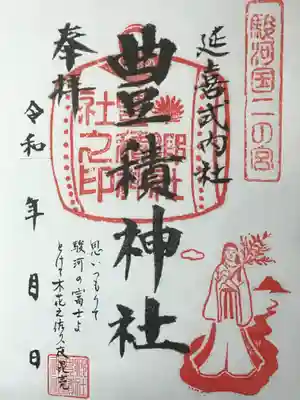 駿河国二の宮
延喜式内社
豊積神社
奉拝
令和 年 月 日
思いつもりて
駿河の富士よ
とけて木花之佐久夜毘売